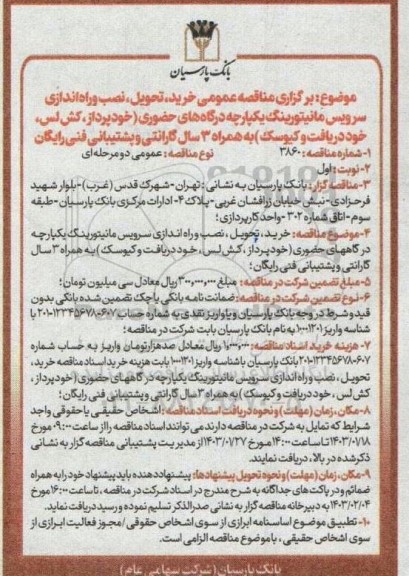 بانک پارسیان
موضوع: برگزاری مناقصه عمومی خرید، تحویل، نصب و راه اندازی
سرویس مانیتورینگ یکپارچه درگاه های حضوری (خودپرداز، کش لس،
خود دریافت و کیوسک) به همراه ۳ سال گارانتی و پشتیبانی فنی رایگان
۱- شماره مناقصه: ۳۸۶۰ نوع مناقصه: عمومی دو مرحله ای
۲- نوبت: اول
۳- مناقصه گزار: بانک پارسیان به نشانی: تهران - شهرک قدس (غرب) - بلوار شهید
فرحزادی - نبش خیابان زرافشان غربی - پلاک ۴ - ادارات مرکزی بانک پارسیان - طبقه
سوم - اتاق شماره ۳۰۲ - واحد کارپردازی؛
۴- موضوع مناقصه: خرید، تحویل، نصب و راه اندازی سرویس مانیتورینگ یکپارچه
درگاههای حضوری (خودپرداز، کش لس، خود دریافت و کیوسک) به همراه ۳ سال
گارانتی و پشتیبانی فنی رایگان؛
۵- مبلغ تضمین شرکت در مناقصه: مبلغ ۳۰۰,۰۰۰,۰۰۰ ریال معادل سی میلیون تومان؛
۶- نوع تضمین شرکت در مناقصه: ضمانت نامه بانکی یا چک تضمین شده بانکی بدون
قید و شرط در وجه بانک پارسیان و یا واریز نقدی به شماره حساب ۲۰۱۰۱۲۳۴۵۶۷۸۰۶۰۷ با
شناسه واریز ۱۰۰۰۱۳۰۱ به نام بانک پارسیان بابت شرکت در مناقصه؛
۷- هزینه خرید اسناد مناقصه: ۱,۰۰۰,۰۰۰ ریال معادل صد هزار تومان واریز به حساب شماره
۲۰۱۰۱۲۳۴۵۶۷۸۰۶۰۷ بانک پارسیان با شناسه واریز ۱۰۰۰۱۳۰۱ بابت هزینه خرید اسناد مناقصه خرید،
تحویل، نصب و راه اندازی سرویس مانیتورینگ یکپارچه درگاههای حضوری (خودپرداز،
کش لس، خود دریافت و کیوسک) به همراه ۳ سال گارانتی و پشتیبانی فنی رایگان؛
۸- مکان، زمان (مهلت) و نحوه دریافت اسناد مناقصه: اشخاص حقیقی یا حقوقی واجد
شرایط که تمایل به شرکت در مناقصه دارند می توانند اسناد مناقصه را از ساعت ۰۹:۰۰ مورخ
۱۴۰۳/۰۱/۱۸ تا ساعت ۱۴:۰۰ مورخ ۱۴۰۳/۰۱/۲۷ از مدیریت پشتیبانی مناقصه گزار به نشانی
ذکر شده در بالا، دریافت نمایند.
۹- مکان، زمان (مهلت) و نحوه تحویل پیشنهادها: پیشنهاد دهنده باید پیشنهاد خود را به همراه
ضمائم و در پاکت های جداگانه به شرح مندرج در اسناد شرکت در مناقصه، تا ساعت ۱۶:۰۰ مورخ
۱۴۰۳/۰۲/۰۴ به دبیرخانه مناقصه گزار به نشانی صدرالذکر تسلیم نموده و رسید دریافت نماید.
۱۰- تطبیق موضوع اساسنامه ابرازی از سوی اشخاص حقوقی / مجوز فعالیت ابرازی از
سوی اشخاص حقیقی، با موضوع مناقصه الزامی است.
بانک پارسیان (شرکت سهامی عام)